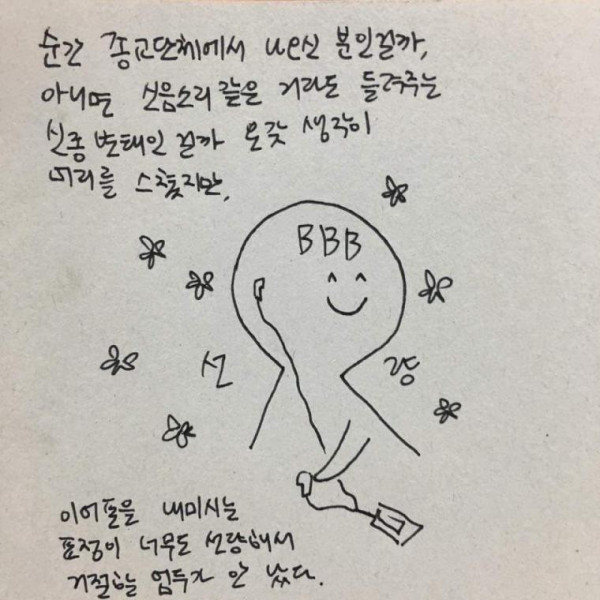 순간 종교단체에서 나오신 분인걸까,
아니면 신음소리 같은 거라도 들려주는
신종 변태인 걸까 온갖 생각이
머리를 스쳤지만,
BBB
선 량
이어폰을 내미시는
표정이 너무도 선량해서
거절할 엄두가 안 났다.